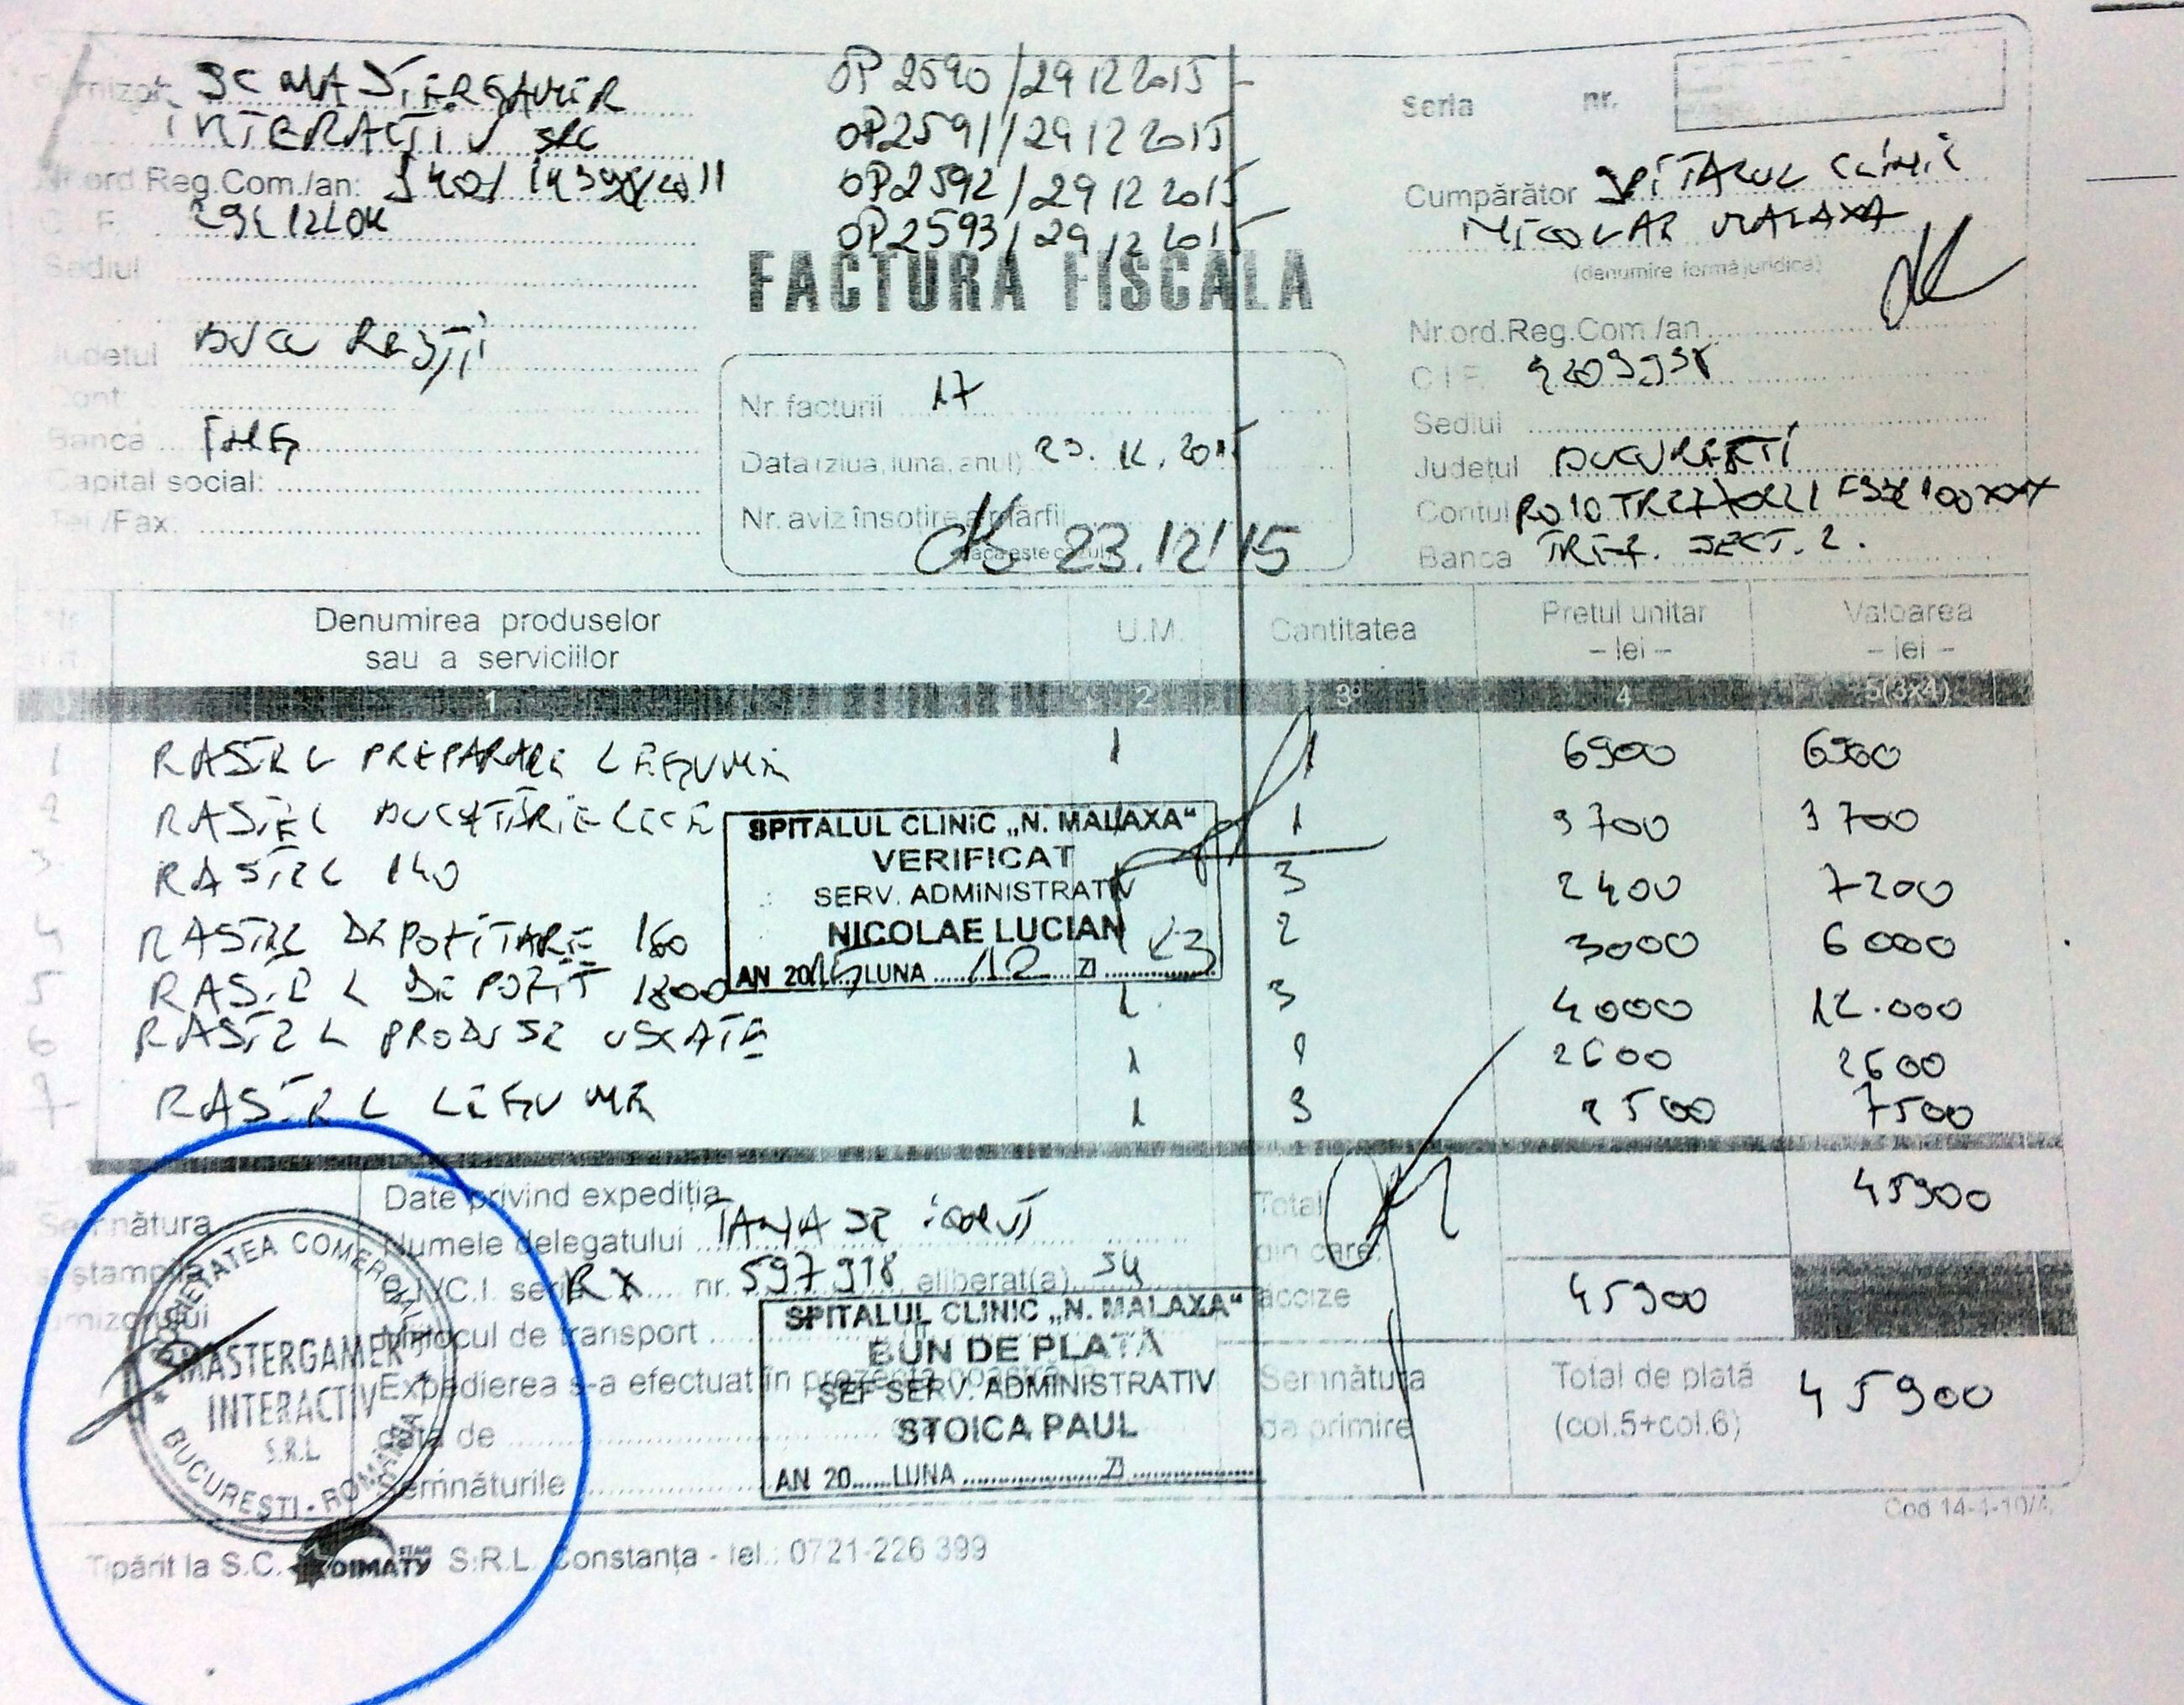 Furnizor SC MASTERGAMER
INTERACTIV SRL
Nr.ord.Reg.Com./an: J40/
C.I.F.
Sediul
Judeţul BUCUREŞTI
Cont
Banca ING
Capital social:
Tel./Fax:
OP 2590/29 12 2015
OP 2591/29 12 2015
OP 2592/29 12 2015
OP 2593/29 12 2015
FACTURA FISCALA
Nr. facturii 17
Data (ziua, luna, anul) 23. 12. 2015
Nr. aviz însoţire a mărfii
(dacă este cazul)
23.12/15
Seria nr.
Cumpărător SPITALUL CLINIC
NICOLAE MALAXA
(denumire formă juridică)
Nr.ord.Reg.Com./an
C.I.F. 4203938
Sediul
Judeţul BUCUREŞTI
Contul
Banca TREZ. SECT. 2.
Denumirea produselor sau a serviciilor U.M. Cantitatea Preţul unitar – lei – Valoarea – lei –
1 2 3 4 5(3x4)
1 RASTEL PREPARARE LEGUME 1 1 6900 6900
2 RASTEL BUCĂTĂRIE RECE 1 3700 3700
3 RASTEL 140 3 2400 7200
4 RASTEL DEPOZITARE 160 2 3000 6000
5 RASTEL DEPOZIT 1800 1 3 4000 12.000
6 RASTEL PRODUSE USCATE 1 1 2600 2600
7 RASTEL LEGUME 1 3 2500 7500
SPITALUL CLINIC „N. MALAXA“
VERIFICAT
SERV. ADMINISTRATIV
NICOLAE LUCIAN
AN 2015 LUNA 12 ZI 23
Semnătura
şi ştampila
furnizorului
SOCIETATEA COMERCIALĂ
MASTERGAMER
INTERACTIV
S.R.L.
BUCUREŞTI - ROMÂNIA
Date privind expediţia
Numele delegatului TANASE IONUT
B.I./C.I. seria RX nr. 597918 eliberat(a)
Mijlocul de transport
Expedierea s-a efectuat în prezenţa noastră
data de
Semnăturile
SPITALUL CLINIC „N. MALAXA“
BUN DE PLATA
ŞEF SERV. ADMINISTRATIV
STOICA PAUL
AN 20 LUNA ZI
Total 45900
din care:
accize 45900
Semnătura
de primire
Total de plată
(col.5+col.6) 45900
Cod 14-4-10/A
Tipărit la S.C. DIMATY STAR S.R.L. Constanţa - tel.: 0721-226 399